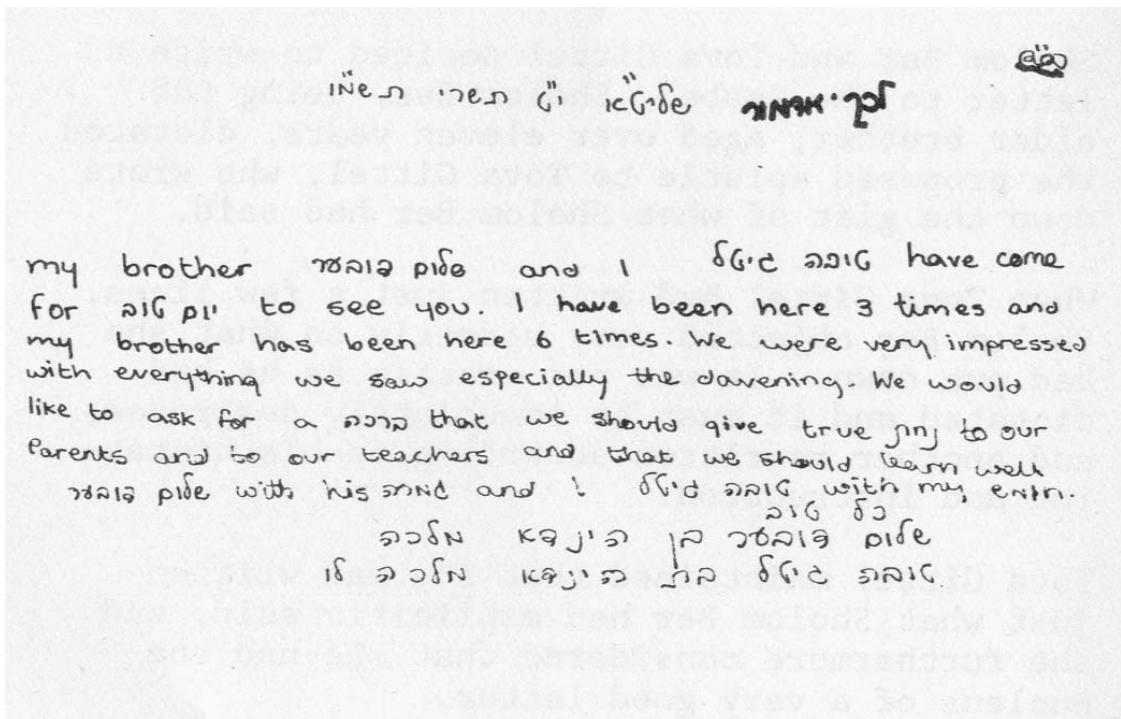 לכק אדמור שליט"א י"ט תשרי תשמ"ו
my brother שלום דובער and I טובה גיטל have come
for יום טוב to see you. I have been here 3 times and
my brother has been here 6 times. We were very impressed
with everything we saw especially the davening. We would
like to ask for a ברכה that we should give true נחת to our
Parents and to our teachers and that we should learn well
שלום דובער with his גמרה and I טובה גיטל with my
כל טוב
שלום דובער בן הינדא מלכה
טובה גיטל בת הינדא מלכה